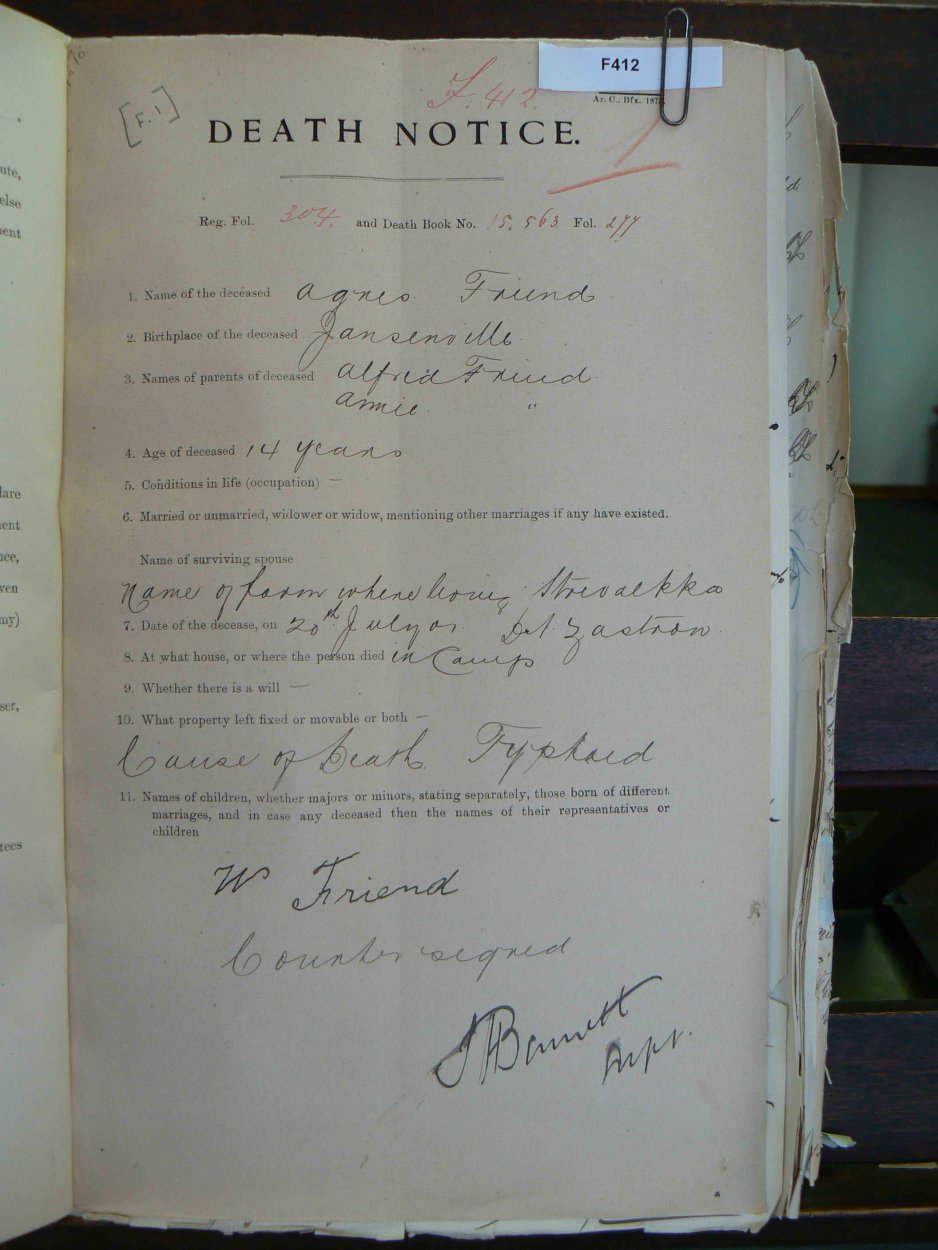 F412
F. 412.
Ar. C., Bfx. 187
[F. 1]
DEATH NOTICE.
1
Reg. Fol. 304. and Death Book No. 15,563 Fol. 277
1. Name of the deceased Agnes Friend
2. Birthplace of the deceased Jansenville
3. Names of parents of deceased Alfred Friend
Annie "
4. Age of deceased 14 years
5. Conditions in life (occupation) —
6. Married or unmarried, widower or widow, mentioning other marriages if any have existed.
Name of surviving spouse
Name of farm where living
7. Date of the decease, on 20th July 01 Dst Zastron
8. At what house, or where the person died in Camp
9. Whether there is a will —
10. What property left fixed or movable or both —
Cause of Death Typhoid
11. Names of children, whether majors or minors, stating separately, those born of different
marriages, and in case any deceased then the names of their representatives or
children
W Friend
Counter signed
Bennett
Supt.
ute,
else
ent
lare
ent
nce,
ven
my)
ser,
tees